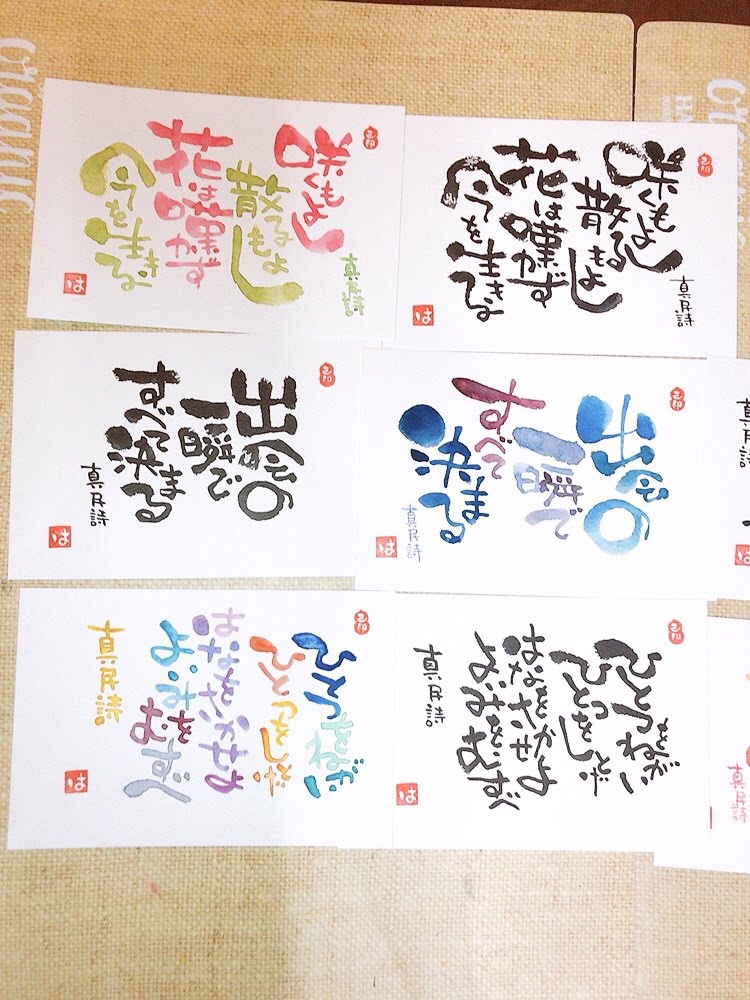 咲くもよし
散るもよし
花は嘆かず
今を生きる
真民詩
は
咲くもよし
散るもよし
花は嘆かず
今を生きる
真民詩
は
出会の
一瞬で
すべて
決まる
真民詩
は
出会の
一瞬で
すべて
決まる
真民詩
は
ひとつをねがい
ひとつをしとげ
はなをさかせよ
よいみを
むすべ
真民詩
は
ひとつをねがい
ひとつをしとげ
はなをさかせよ
よいみをむすべ
真民詩
は
真民詩
真民詩